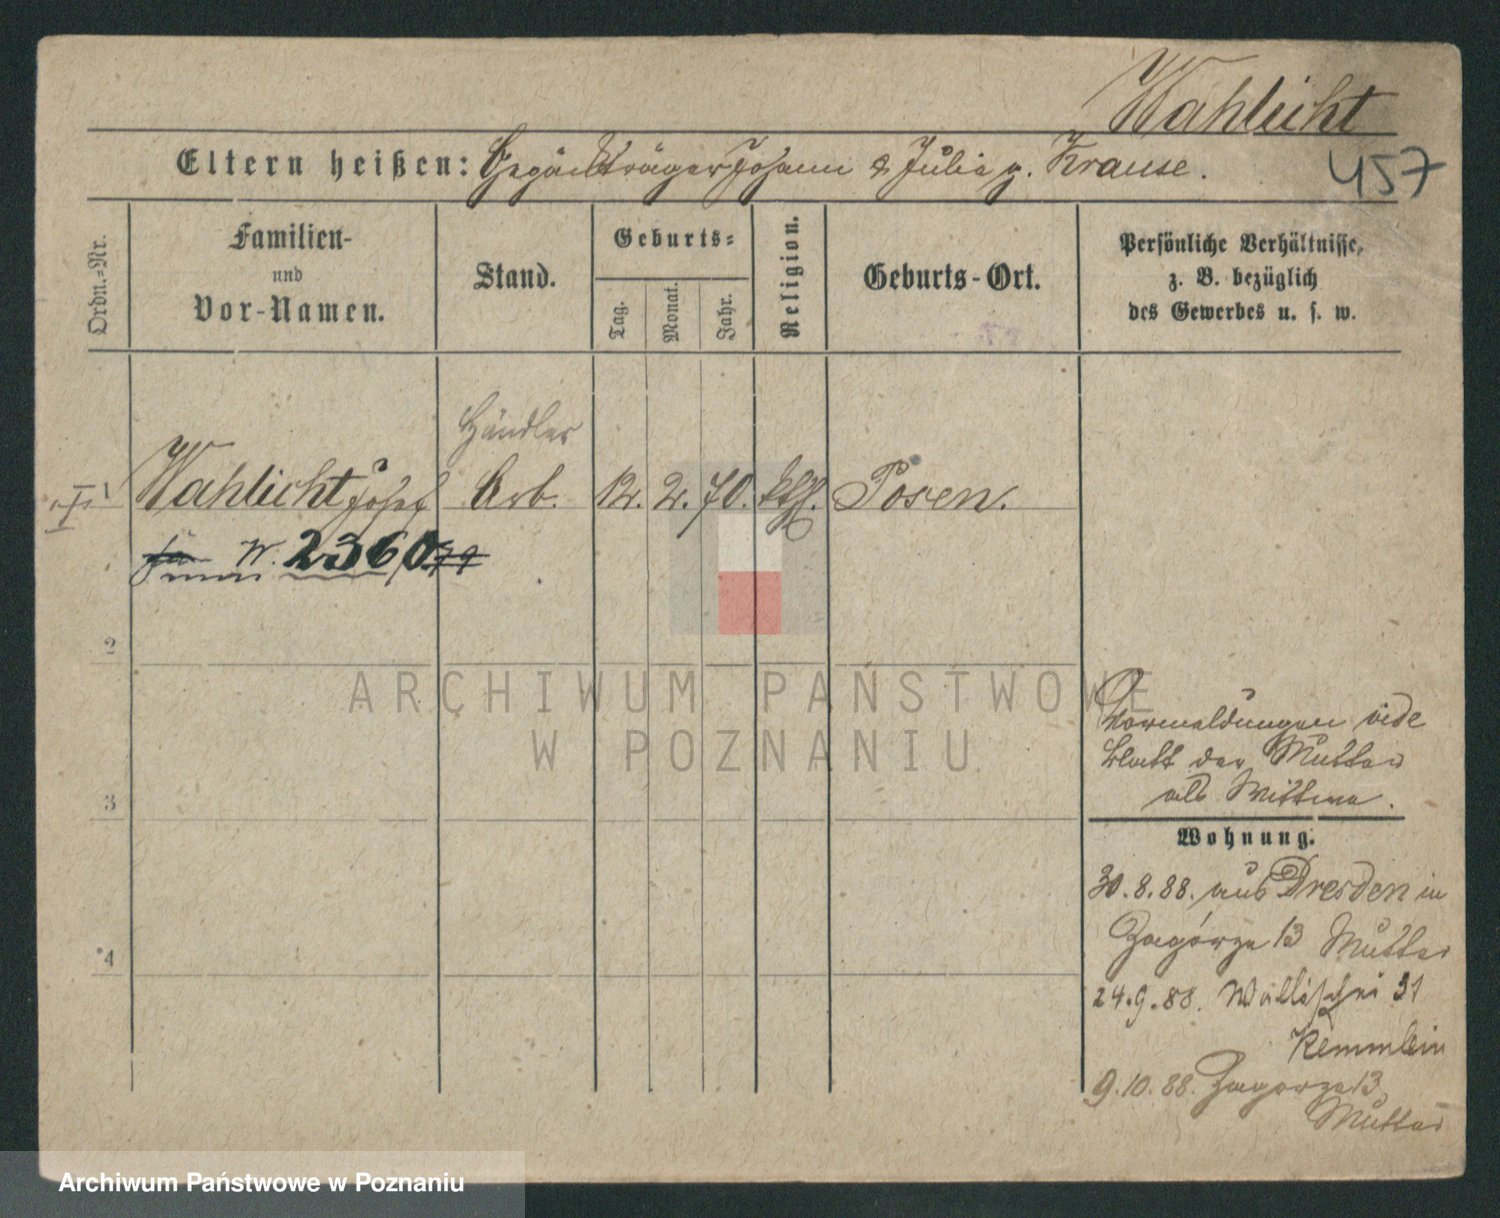 Wahlicht
457
Eltern heißen: Gepäckträger Johann & Julie g. Krause.
Ordn.=Nr.
Familien-
und
Vor-Namen.
Stand.
Geburts=
Tag.
Monat.
Jahr.
Religion.
Geburts-Ort.
Persönliche Verhältnisse,
z. B. bezüglich
des Gewerbes u. s. w.
Händler
1 Wahlicht Josef Arb. 12. 2. 70. kth. Posen.
W. 2360
2
ARCHIWUM PAŃSTWOWE
W POZNANIU
Vormeldungen vide
Blatt der Mutter
als Wittwe.
3
Wohnung.
30.8.88. aus Dresden in
Zagórze 13 Mutter
4
24.9.88. Wallischei 31
Remmlein
9.10.88. Zagorze 13
Mutter
Archiwum Państwowe w Poznaniu